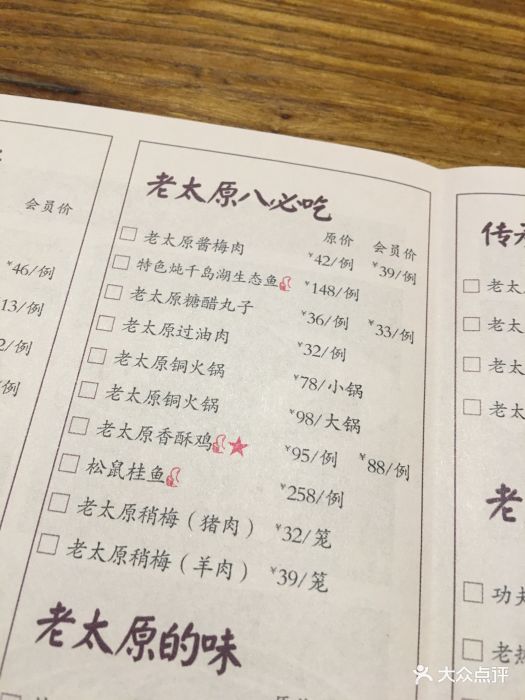 会员价
¥46/例
13/例
2/例
/例
老太原八必吃
原价 会员价
老太原酱梅肉 ¥42/例 ¥39/例
特色炖千岛湖生态鱼 ¥148/例
老太原糖醋丸子 ¥36/例 ¥33/例
老太原过油肉 ¥32/例
老太原铜火锅 ¥78/小锅
老太原铜火锅 ¥98/大锅
老太原香酥鸡 ¥95/例 ¥88/例
松鼠桂鱼 ¥258/例
老太原稍梅（猪肉） ¥32/笼
老太原稍梅（羊肉） ¥39/笼
老太原的味
传
老太
老太
老太
老太
老
功夫
老热
大众点评